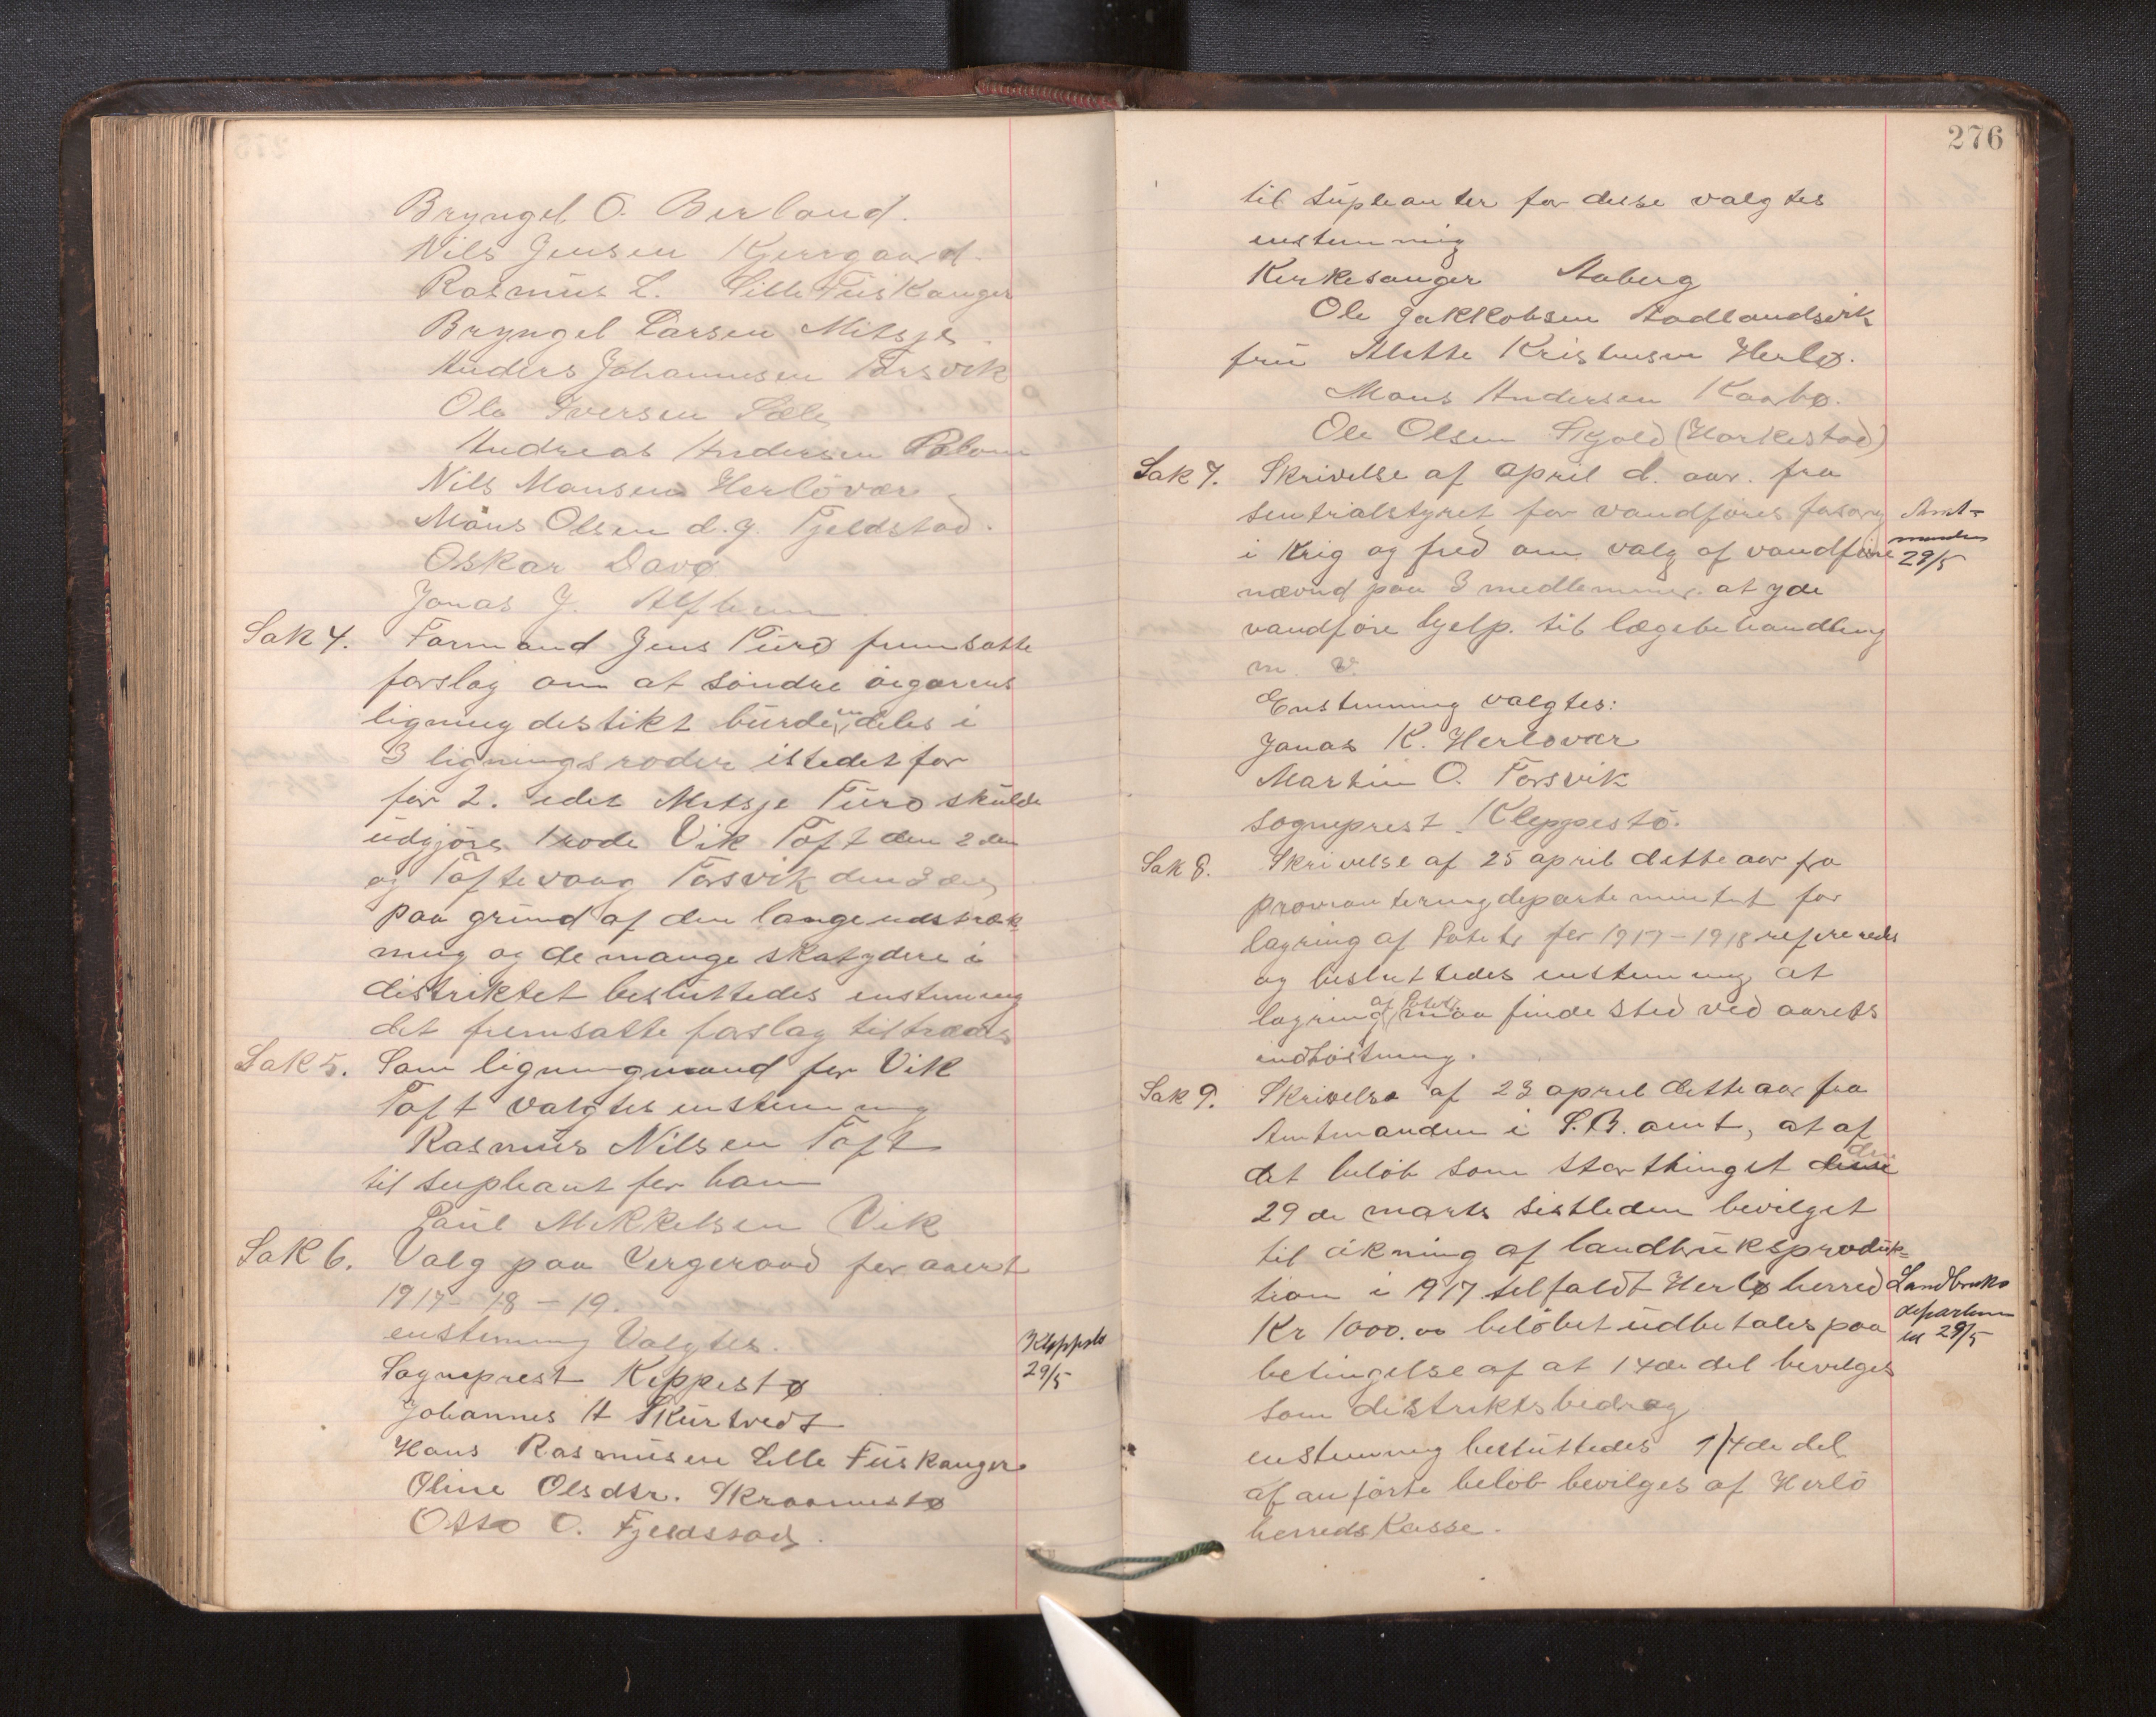 Bryngel O. Berland.
Nils Jensen Kjerrgaard.
Rasmus L. Lille Fuskanger
Bryngel Larsen Mitsje.
Anders Johannesen Forsvik
Ole Iversen Sæle
Andreas Andersen
Nils Monsen Herlövær
Mons Olsen d.y. Fjeldstad.
Oskar Davø
Jonas J.
Sak 4. Formand Jens Turø fremsatte
forslag om at söndre öigarens
ligning destikt burde inddeles i
3 ligningsroder istedet for
for 2. idet Mitsje Turo skulde
udgjöre 1 rode Vik Toft den 2 den
og Toftevaag Torsvik den 3 den
paa grund af den lange udstræk-
ning og de mange skatydere i
distriktet besluttedes enstemmig
det fremsatte forslag tiltrædes
Sak 5. Som ligningmand for Vik
Toft valgtes enstemmig
Rasmus Nilsen Toft
til supleant for ham
Paul Mikkelsen Vik
Sak 6. Valg paa Vergeraad for aaert
1917-18-19.
enstemmig Valgtes.
Sogneprest Keppestø
Kleppestø
29/5
Johannes H Skurtvedt
Hans Rasmusen Lille Fuskanger
Oline Olsdtr. Skraamestø
Otto O. Fjeldstad.
276
til supleanter for disse valgtes
enstemmig
Kirkesanger Aaberg
Ole Jakkobsen Aadlandsvik
fru Alette Kristensen Herlø.
Mons Andersen Kaarbø.
Ole Olsen Skjold (Harkestad)
Sak 7. Skrivelse af april d. aar. fra
sentralstyret for vandföres forsorg
Amt-
manden
29/5
i krig og fred om valg af vandföre
nævnd paa 3 medlemmer. at yde
vandföre hjelp. til lægebehandling
m. v.
Enstemmig valgtes:
Jonas K. Herlovær
Martin O. Forsvik
sogneprest Kleppestö.
Sak 8. Skrivelse af 25 april dette aar fra
provianteringdepartementet for
lagring af Potete for 1917-1918 refereredes
og besluttedes enstemmig at
lagring af Potete maa finde sted ved aarets
indhöstning.
Sak 9. Skrivelse af 23 april dette aar fra
Amtmanden i S.B. amt, at af
det belöb som storthinget denne den
29 de marts sistleden bevilget
til ökning af landbruksproduk-
tion i 1917 tilfaldt Herlø herred
Landbruks
departemen
et 29/5
Kr 1000.00 belöbet udbetales paa
betingelse af at 1 4de del bevilges
som distriktsbedrag
enstemmig besluttedes 1/4de del
af anförte belöb bevilges af Herlö
herredskasse.